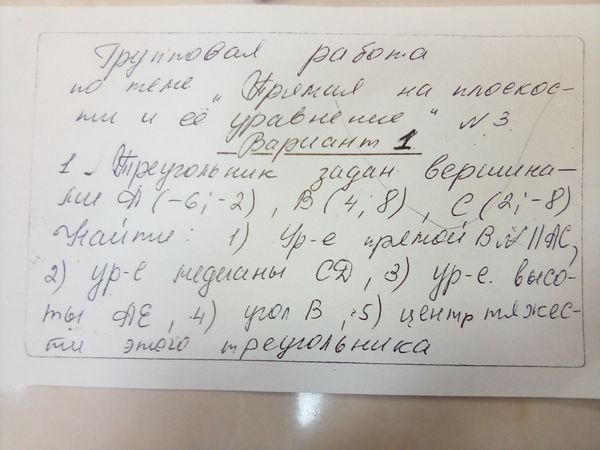 Групповая работа
по теме „Прямая на плоскос-
ти и её уравнение" №3.
Вариант 1.
1. Треугольник задан вершина-
ми А(-6;-2), В(4;8), С(2;-8)
Найти: 1) Ур-е прямой BN||AC,
2) ур-е медианы CD, 3) ур-е. высо-
ты AE, 4) угол В, 5) центр тяжес-
ти этого треугольника